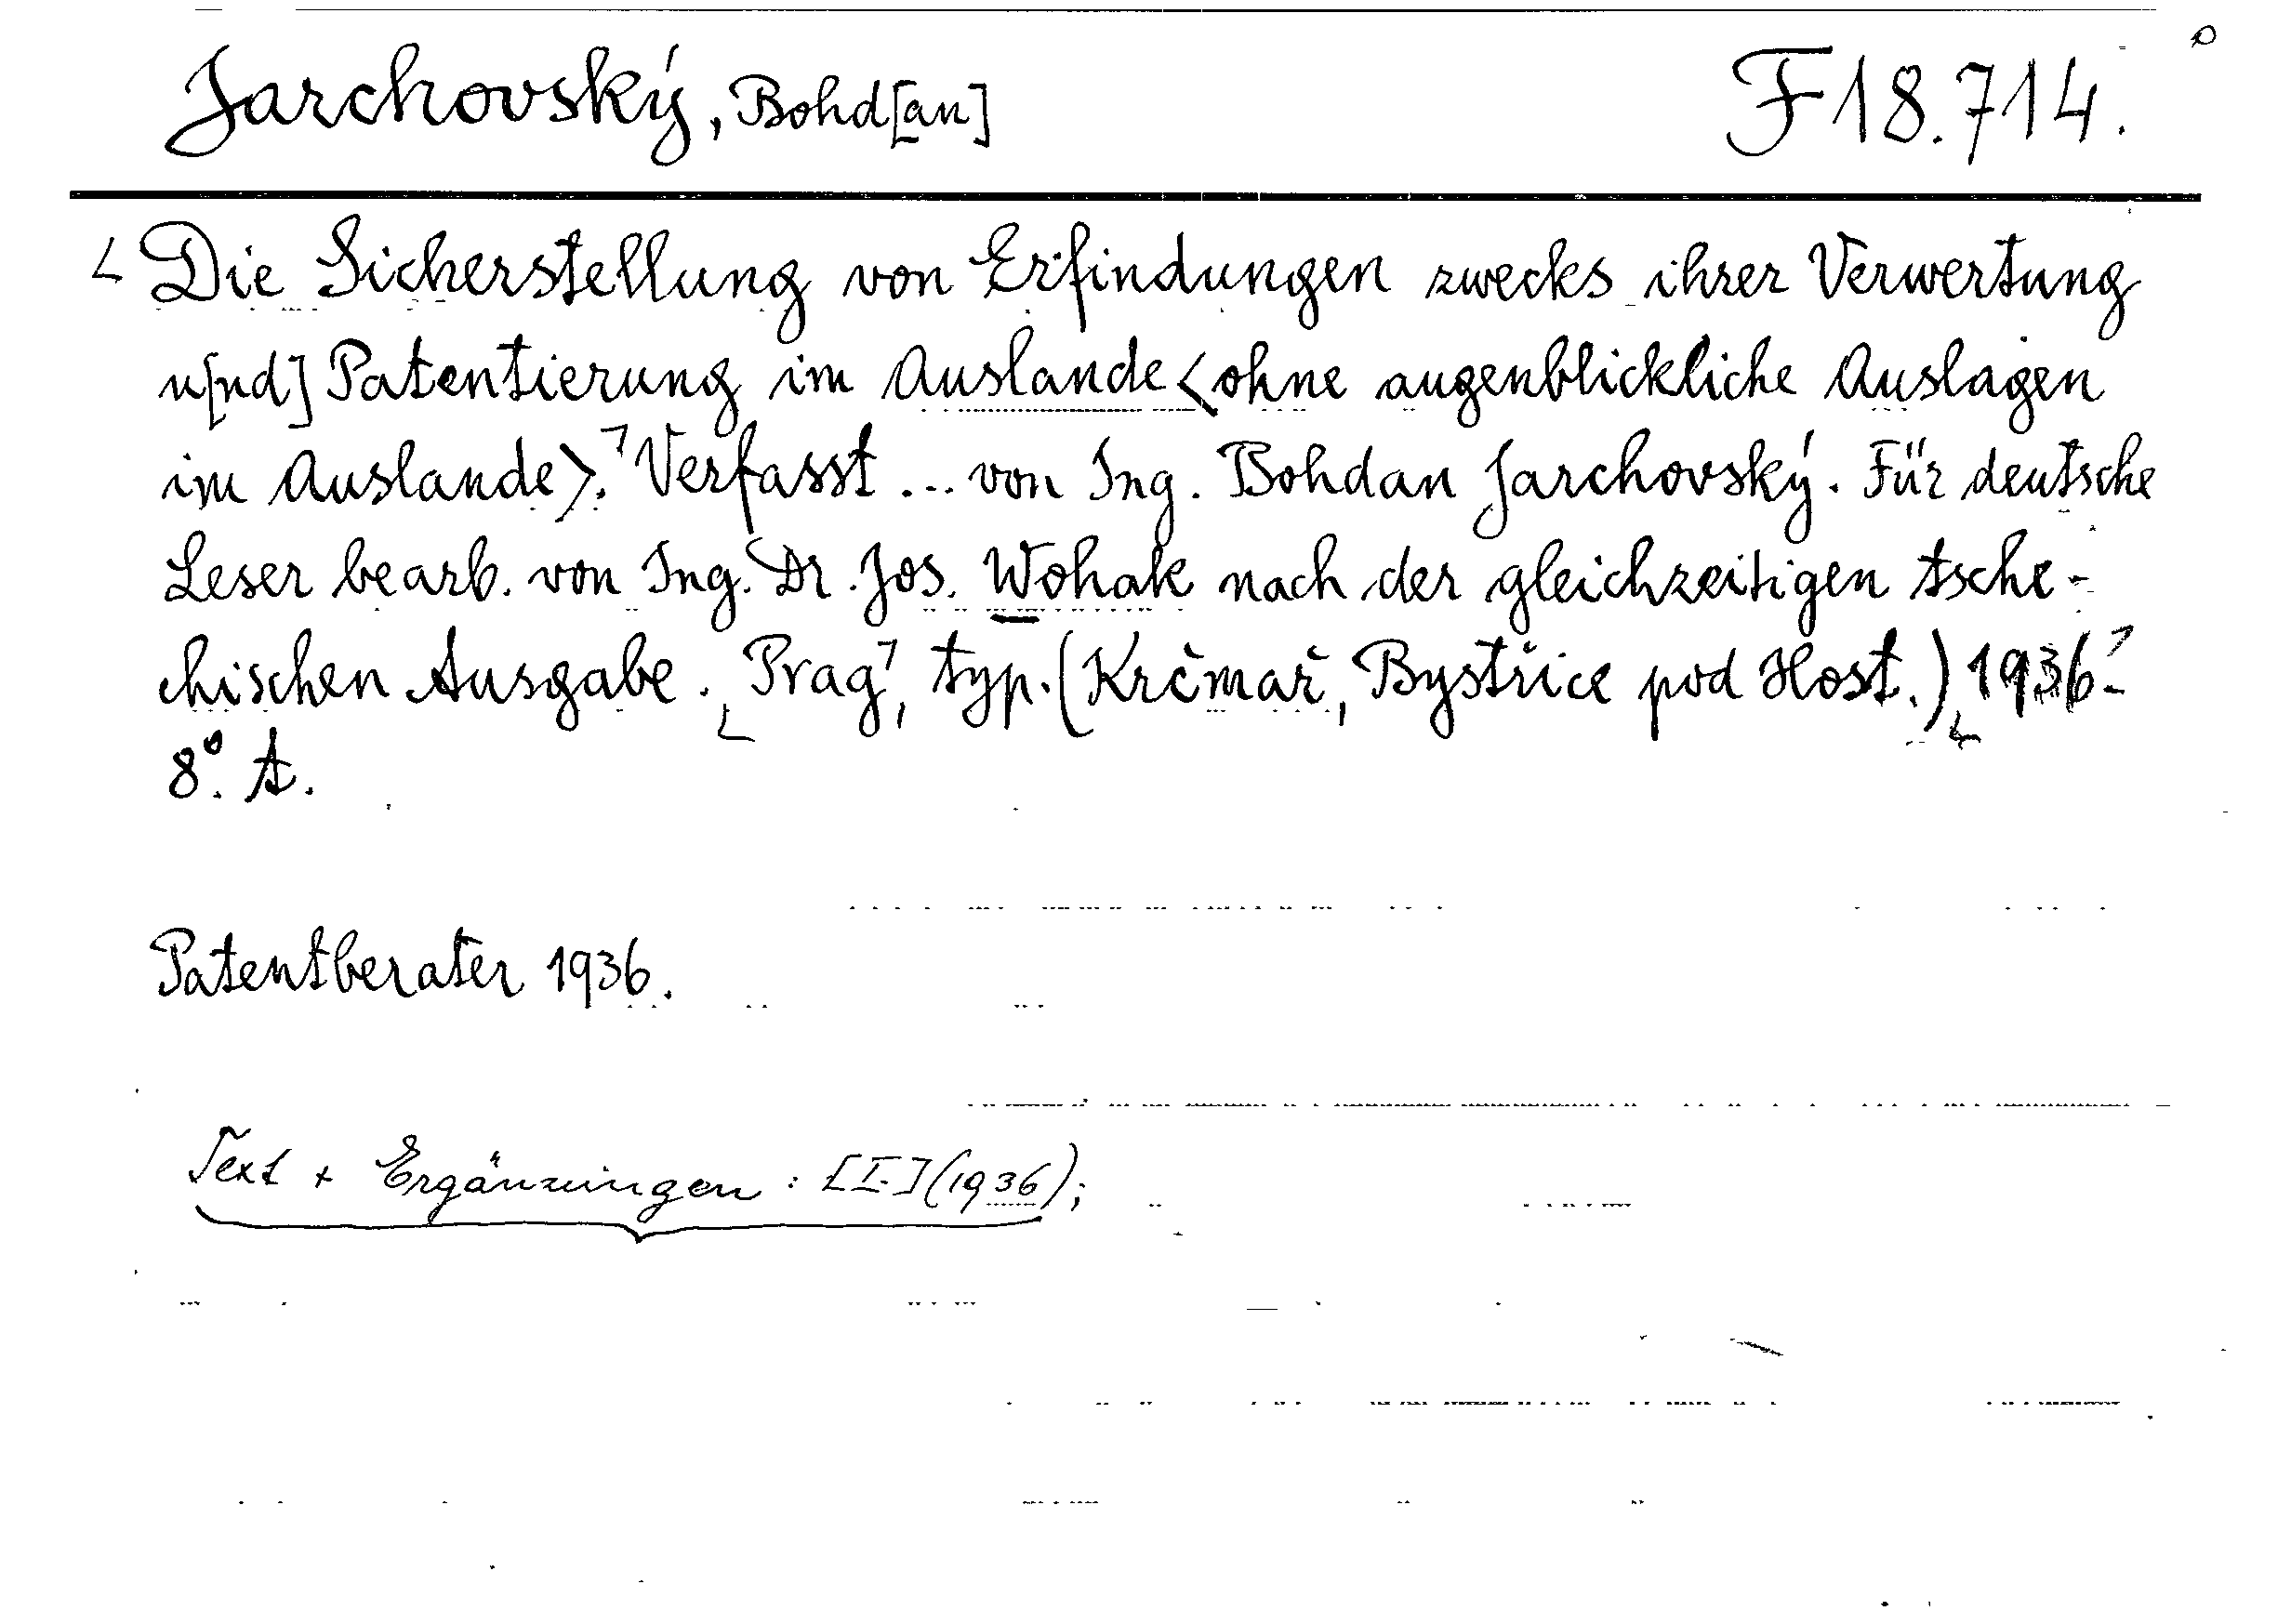 Jarchovský, Bohd[an] F 18.714.
Die Sicherstellung von Erfindungen zwecks ihrer Verwertung
u[nd] Patentierung im Auslande <ohne augenblickliche Auslagen
im Auslande>. Verfasst ... von Ing. Bohdan Jarchovský. Für deutsche
Leser bearb. von Ing. Dr. Jos. Wohak nach der gleichzeitigen tsche-
chischen Ausgabe. Prag, typ. (Krčmař, Bystřice pod Host.) 1936.
8°. A.
Patentberater 1936.
Text + Ergänzungen: [I.] (1936);